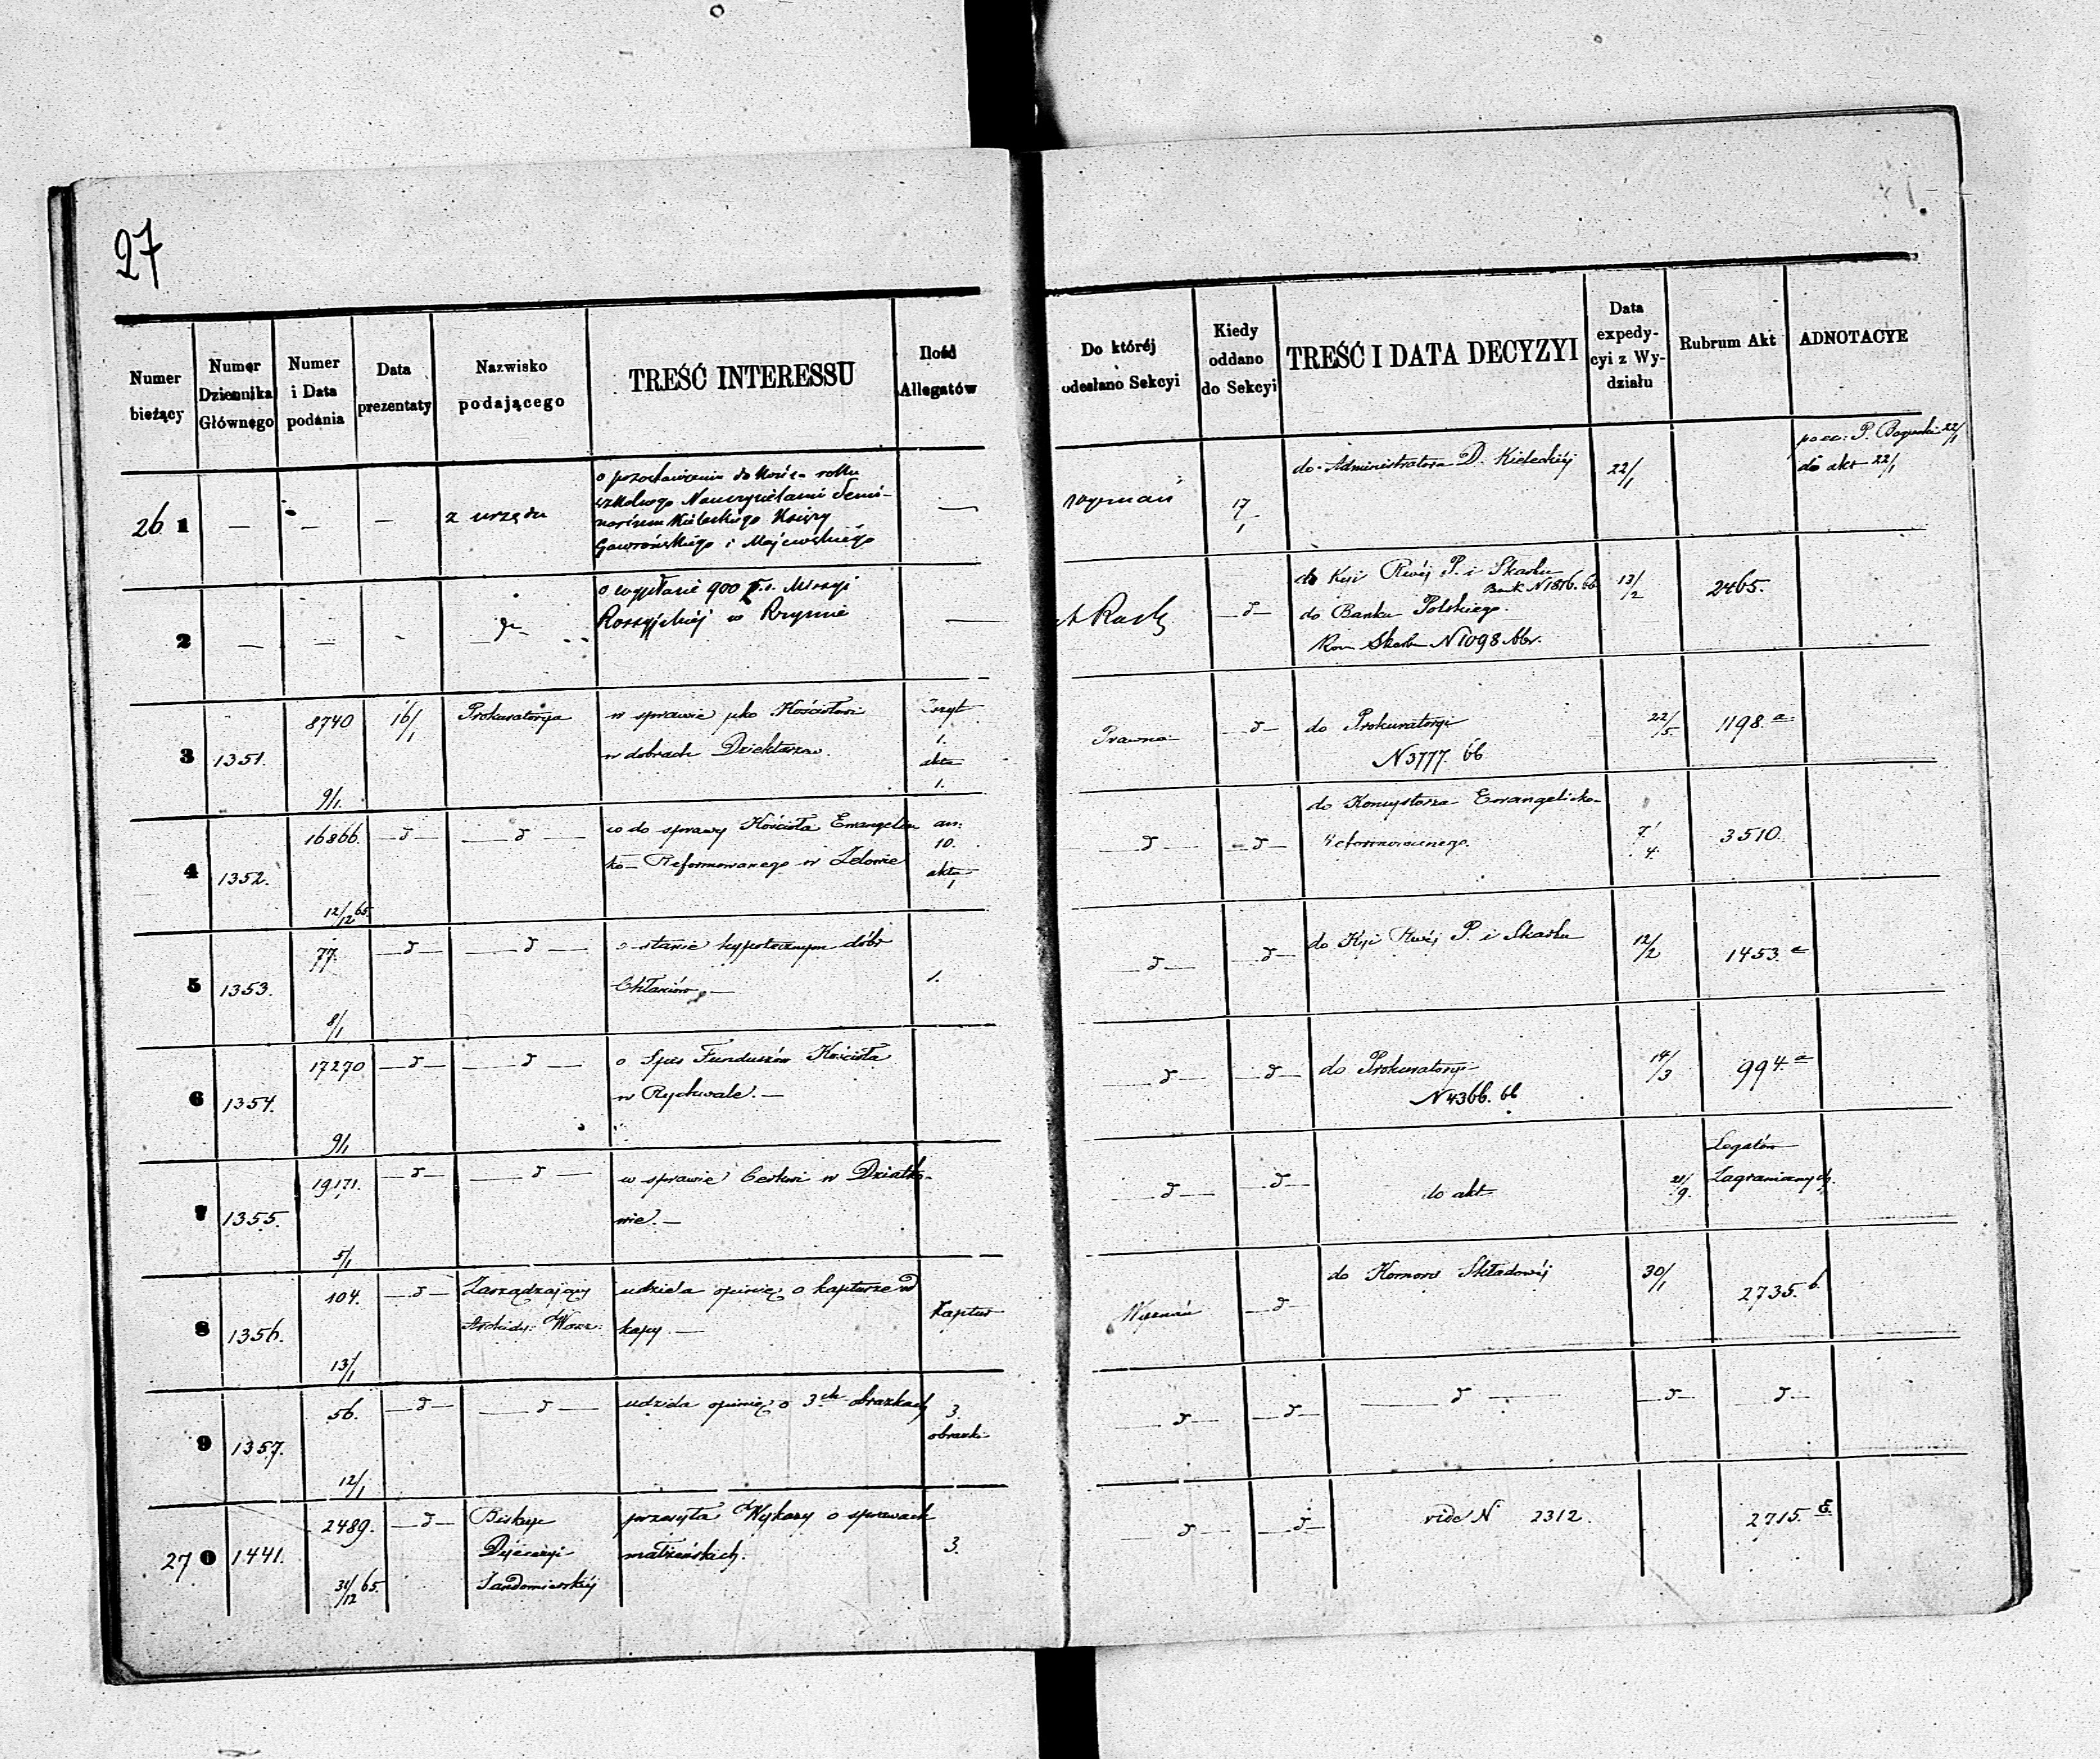 27
Numer bieżący | Numer Dziennika Głównego | Numer i Data podania | Data prezentaty | Nazwisko podającego | TREŚĆ INTERESSU | Ilość Allegatów | Do której odesłano Sekcyi | Kiedy oddano do Sekcyi | TREŚĆ I DATA DECYZYI | Data expedycyi z Wydziału | Rubrum Akt | ADNOTACYE
26 1 — — — z urzędu
o pozostawienie do końca roku
szkolnego Nauczycielami Semi-
narium Kieleckiego Księży
Gawrońskiego i Majewskiego
— Wyznań 17/1
do Administratora D. Kieleckiej
22/1
do akt 22/1
2 — — - —d—
o wypłacie 900 r.s. Missyi
Rossyjskiej w Rzymie
— —d—
do Kyi Rwéj P. i Skarbu
Bank N 1876. 66
do Banku Polskiego.
Kom Skarbu N 1098 66r.
13/2
2465.
3 1351. 8740 9/1. 16/1 Prokuratorya
w sprawie jko Kościołowi
w dobrach Dziektarzew.
Zszyt
1.
akta
1.
Prawna —d—
do Prokuratoryi
N 3777. 66
22/5. 1198. a.
4 1352. 16866. 12/12 65. —d— —d—
co do sprawy Kościoła Ewangelic
ko-Reformowanego w Zelowie
an:
10.
akta
1
—d— —d—
do Konsystorza Ewangelicko-
Reformowanego.
7/4. 3510.
5 1353. 77. 8/1 —d— —d—
o stanie hypotecznym dóbr
Chłaniów. —
1.
—d— —d—
do Kyi Rwéj P. i Skarbu
12/2 1453. a
6 1354. 17270 9/1 —d— —d—
o Spis Funduszów Kościoła
w Rychwale. —
—d— —d—
do Prokuratoryi
N 4366. 66
14/3 994. a
7 1355. 19171. 5/1 —d— —d—
w sprawie Cerkwi w Działko-
wie. —
—d— —d—
do akt
21/9.
Legatów
Zagranicznych.
8 1356. 104. 13/1 —d—
Zarządzający
Archidy: Warsz:
udziela opinię o kapturze od
kapy. —
Kaptur
Wyznań —d—
do Komory Składowéj
30/1 2735. b
9 1357. 56. 12/1 —d— —d—
udziela opinię o 3ch obrazkach
3.
obrazki
—d— —d— —d— —d— —d—
27 0 1441. 2489. 31/12 65. —d—
Biskup
Dyecezyi
Sandomierskiéj
przesyła Wykazy o sprawach
małżeńskich.
3.
—d— —d—
vide N 2312.
2715. E.